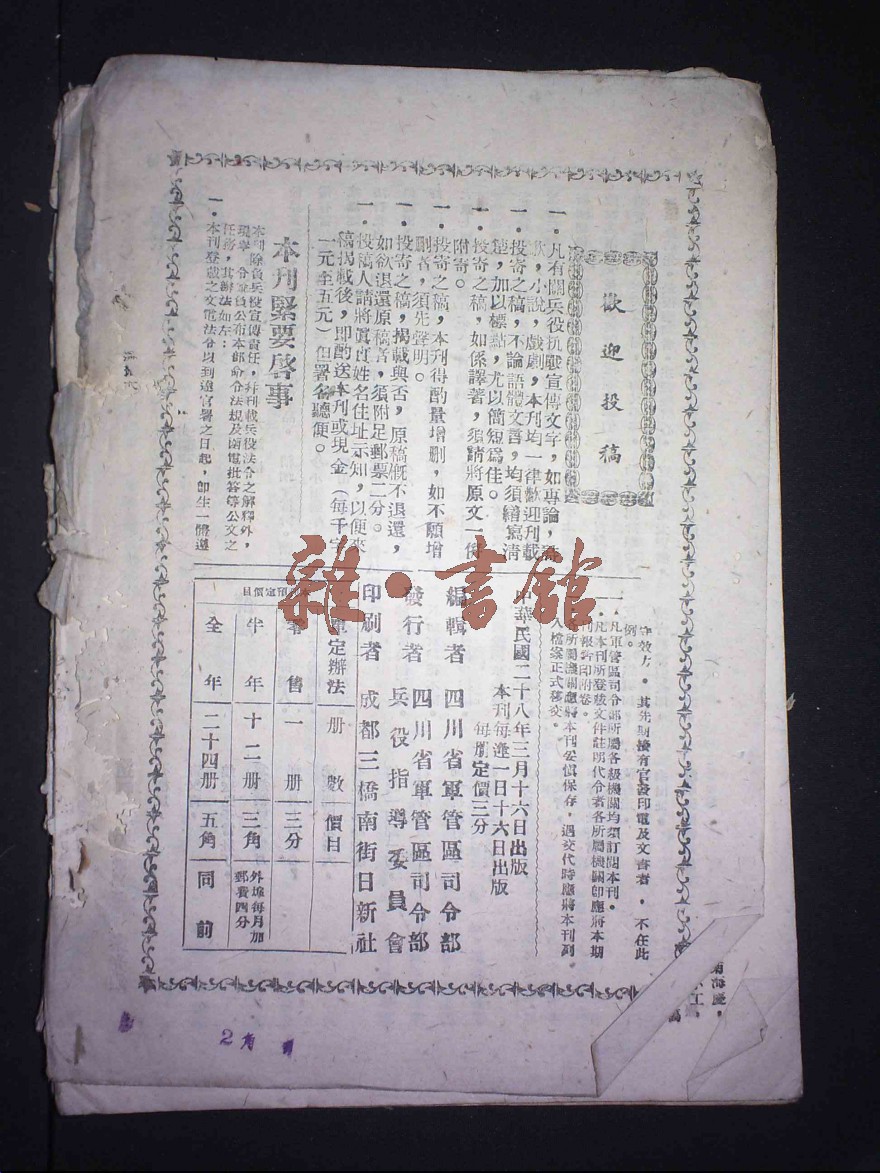 歡迎投稿
一．凡有關兵役抗戰宣傳文字，如專論，詩
歌，小說，戲劇，本刊均一律歡迎刊載
一．投寄之稿，不論語體文言，均須繕寫清
楚，加以標點，尤以簡短爲佳。
一．投寄之稿，如係譯著，須請將原文一併
附寄。
一．投寄之稿，本刊得酌量增删，如不願增
删者，須先聲明。
一．投寄之稿，揭載與否，原稿概不退還，
如欲退還原稿者，須附足郵票二分。
一．投稿人請將眞實姓名住址示知，以便來
稿揭載後，即酌送本刊或現金（每千字
一元至五元）但署名聽便。
本刊緊要啓事
本刊除負兵役宣傳責任，并刊載兵役法令之解釋外，
現奉 令兼負公布本部命令法規及函電批答等公文之
任務，其辦法如左：
一．本刊登載之文電法令以到達官署之日起，即生一體遵
守效力。其先期接有官署印電及文書者，不在此
例。
一．凡軍管區司令部所屬各級機關均須訂閱本刊。
一．凡本刊所登載文件註明代令者各所屬機關即應將本期
刊報拆印附卷。
所屬機關應將本刊妥愼保存，遇交代時應將本刊列
入檔案正式移交。
中華民國二十八年三月十六日出版
本刊每逢一日十六日出版
每册定價三分
編輯者 四川省軍管區司令部
發行者 四川省軍管區司令部
兵役指導委員會
印刷者 成都三橋南街日新社
預定價目
定辦法 册數 價目
零售 一册 三分
半年 十二册 三角 外埠每月加郵費四分
全年 二十四册 五角 同前
雜·書舘
2角